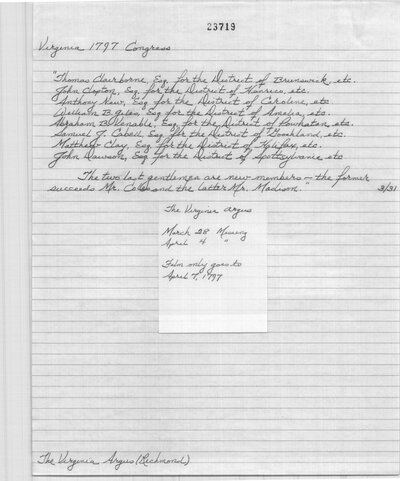 23719
Virginia 1797 Congress
"Thomas Claiborne, Esq. for the District of Brunswick, etc.
John Clopton, Esq. for the District of Henrico, etc.
Anthony New, Esq. for the District of Caroline, etc.
William B. Giles, Esq. for the District of Amelia, etc.
Abraham B. Venable, Esq. for the District of Powhatan, etc.
Samuel J. Cabell, Esq. for the District of Goochland, etc.
Matthew Clay, Esq. for the District of Halifax, etc.
John Dawson, Esq. for the District of Spottsylvania etc
The two last gentlemen are new members - the former
succeeds Mr. Coles and the latter Mr. Madison." 3/31
The Virginia Argus
March 28 Missing
April 4 "
Film only goes to
April 7, 1797
The Virginia Argus (Richmond)